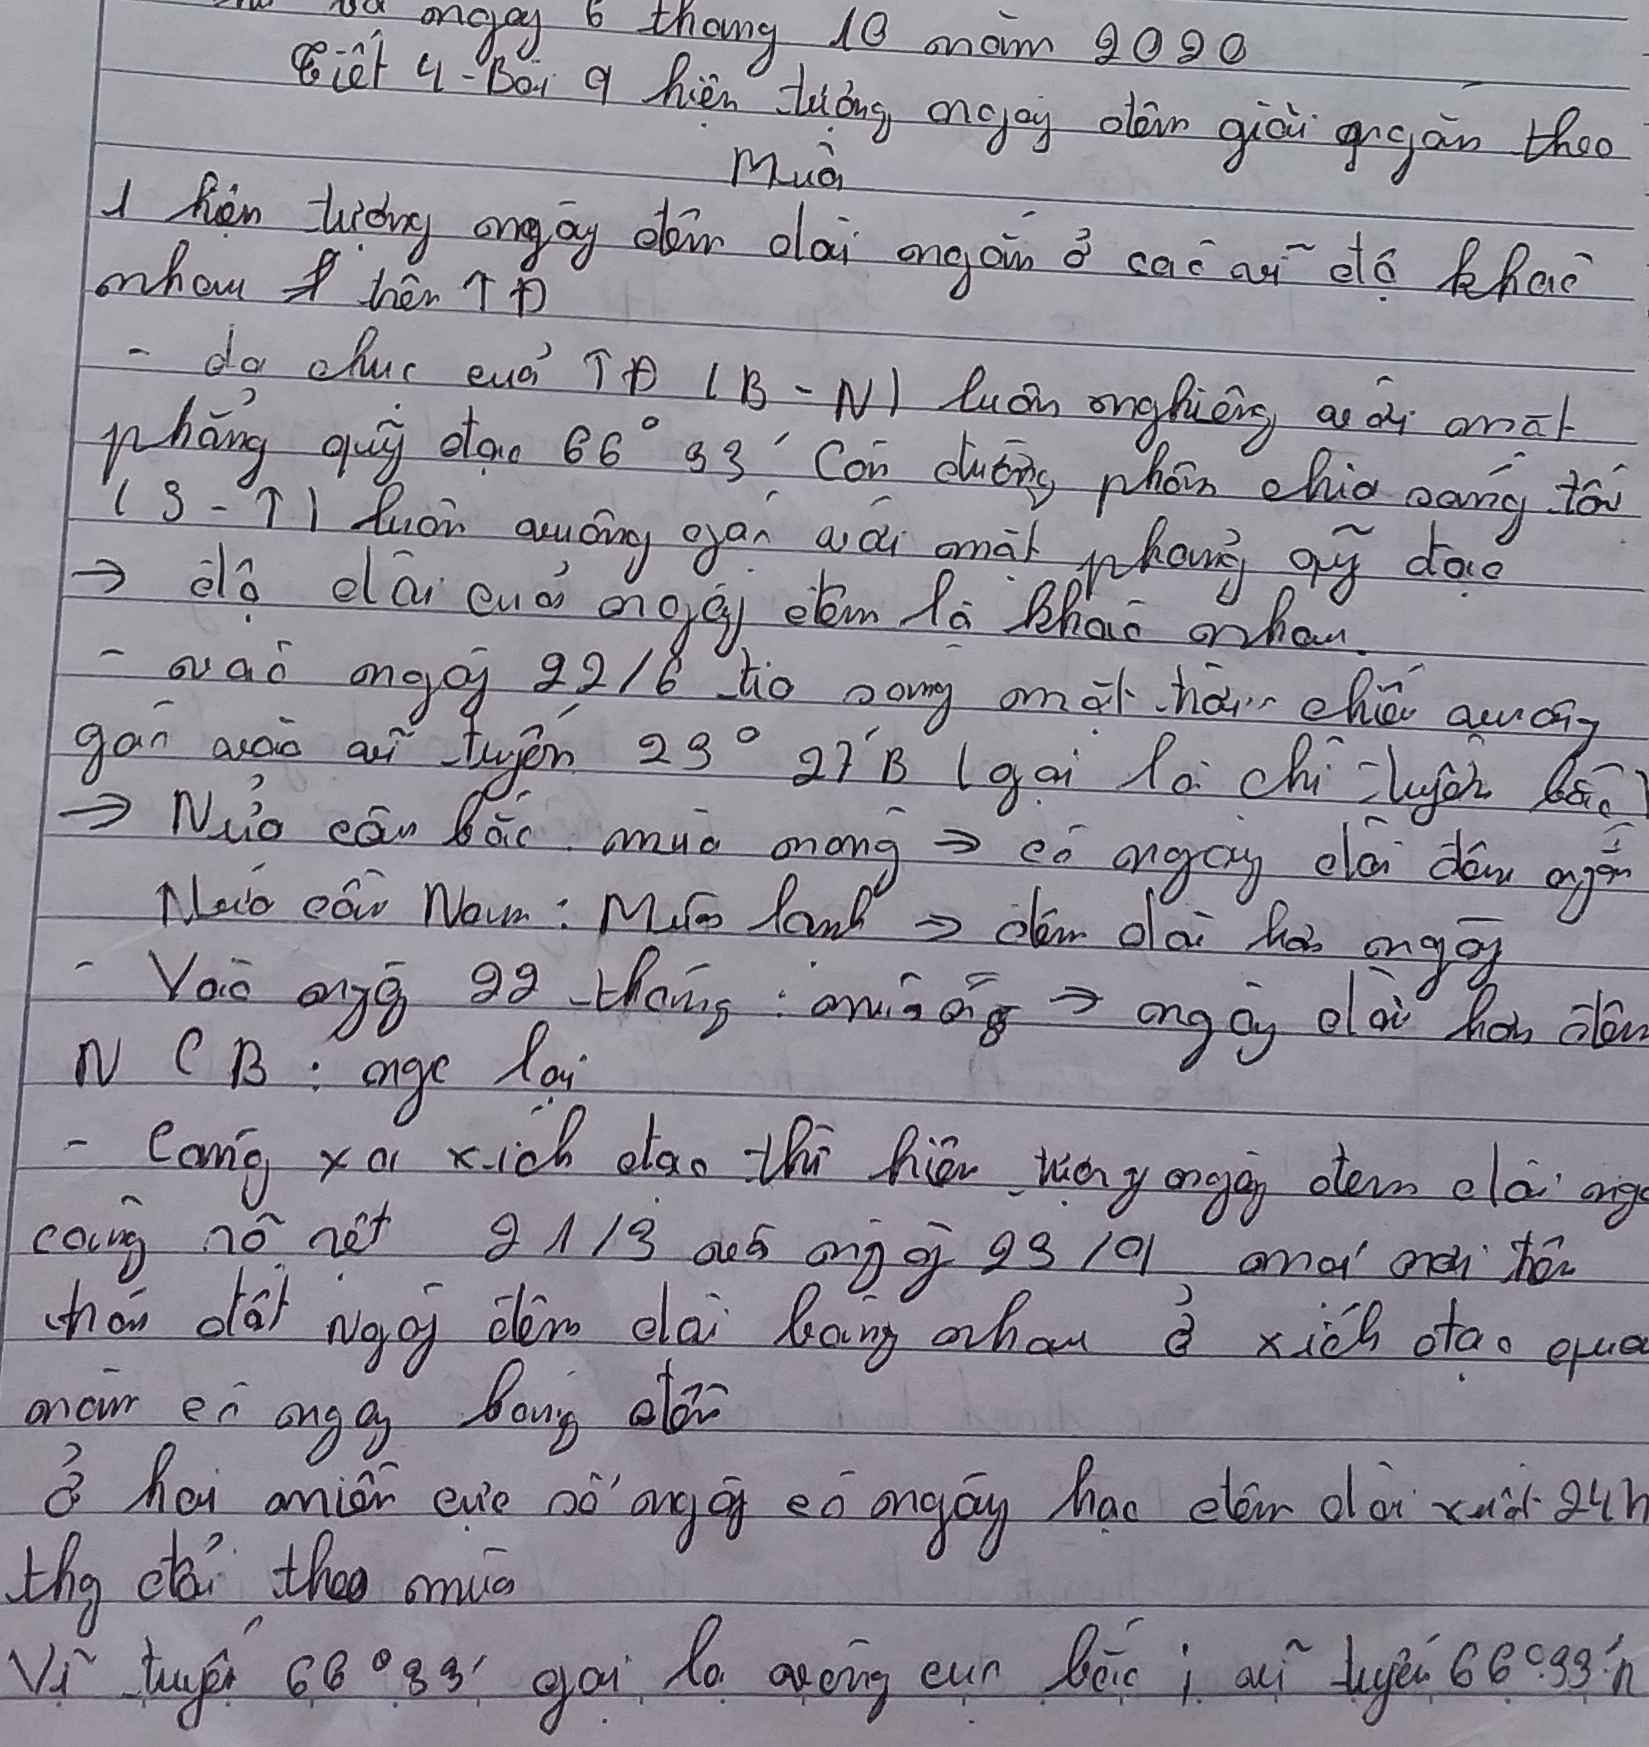 ngày 6 tháng 10 năm 2020
Tiết 4 - Bài 9 hiện tượng ngày đêm giài ngắn theo
Mùa
1 hiện tượng ngày đêm dài ngắn ở các vĩ độ khác
nhau trên TĐ
- do chục của TĐ (B - N) luôn nghiêng với mặt
phẳng quỹ đạo 66° 33' Còn đường phân chia sáng tối
(S - T) luôn vuông gán với mặt phẳng qỹ đạo
→ độ dài của ngày đêm là khác nhau.
- vào ngày 22/6 tia sáng mặt trời chiếu vuông
gán vào vĩ tuyến 23° 27'B (gọi là chí tuyến bắc)
→ Nửa cầu bắc mùa nóng → có ngày dài đêm ngắn
Nửa cầu Nam: Mùa lạnh → đêm dài hơn ngày
- Vào ngày 22 tháng : → ngày dài hơn đêm
N C B : ngc lại
- Càng xa xích đạo thì hiện tượng ngày đêm dài
càng rõ rệt 21/3 và ngày 23/9 mọi nơi trên
trái đất Ngày đêm dài bằng nhau ở xích đạo qua
năm có ngày bằng đêm
ở hai miền cực số ngày có ngày hạc đêm dài xuất 24h
thg đổi theo mùa
Vĩ tuyến 66°33' gọi là vòng cực bắc ; vĩ tuyến 66°33'n